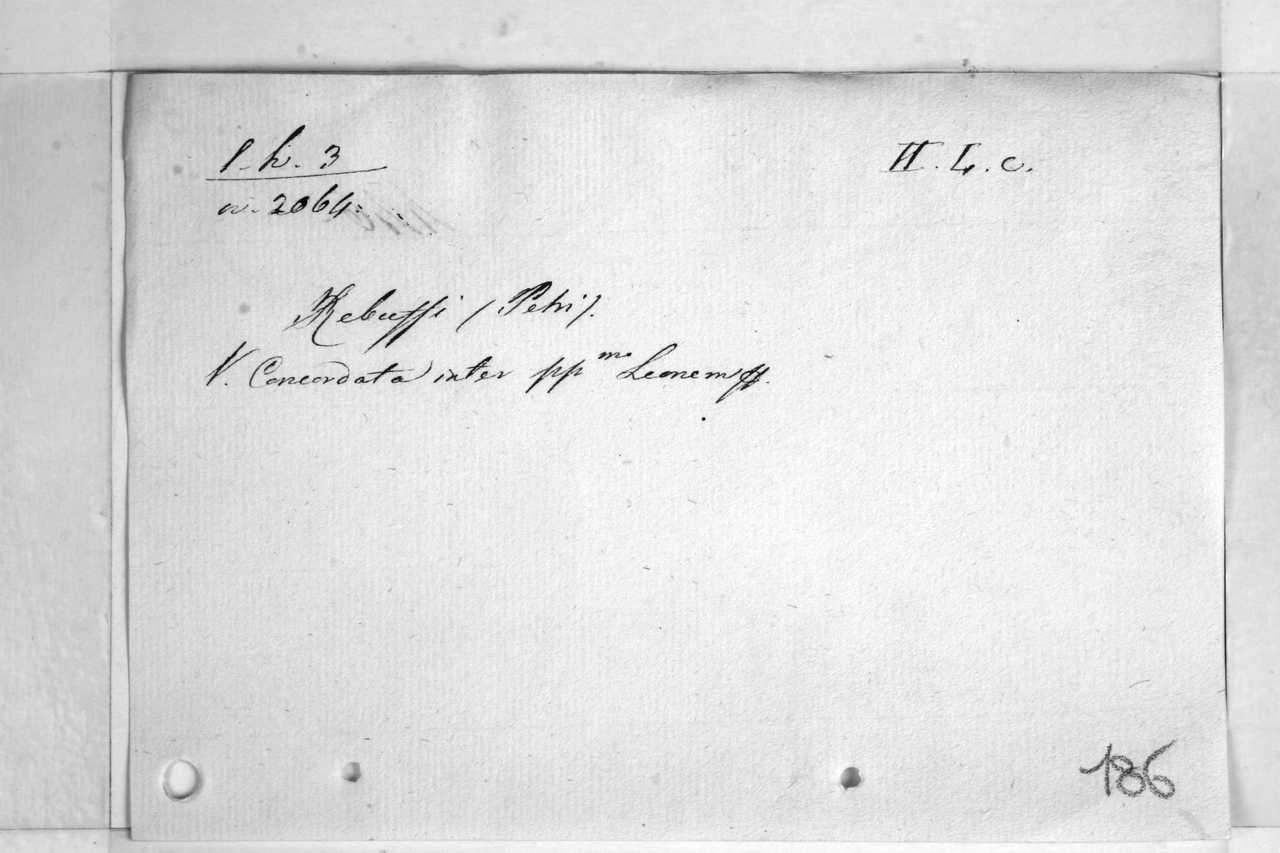 l. h. 3
n. 2064.
II. L. c.
Rebuffi (Petri).
V. Concordata inter ppm Leonem
186